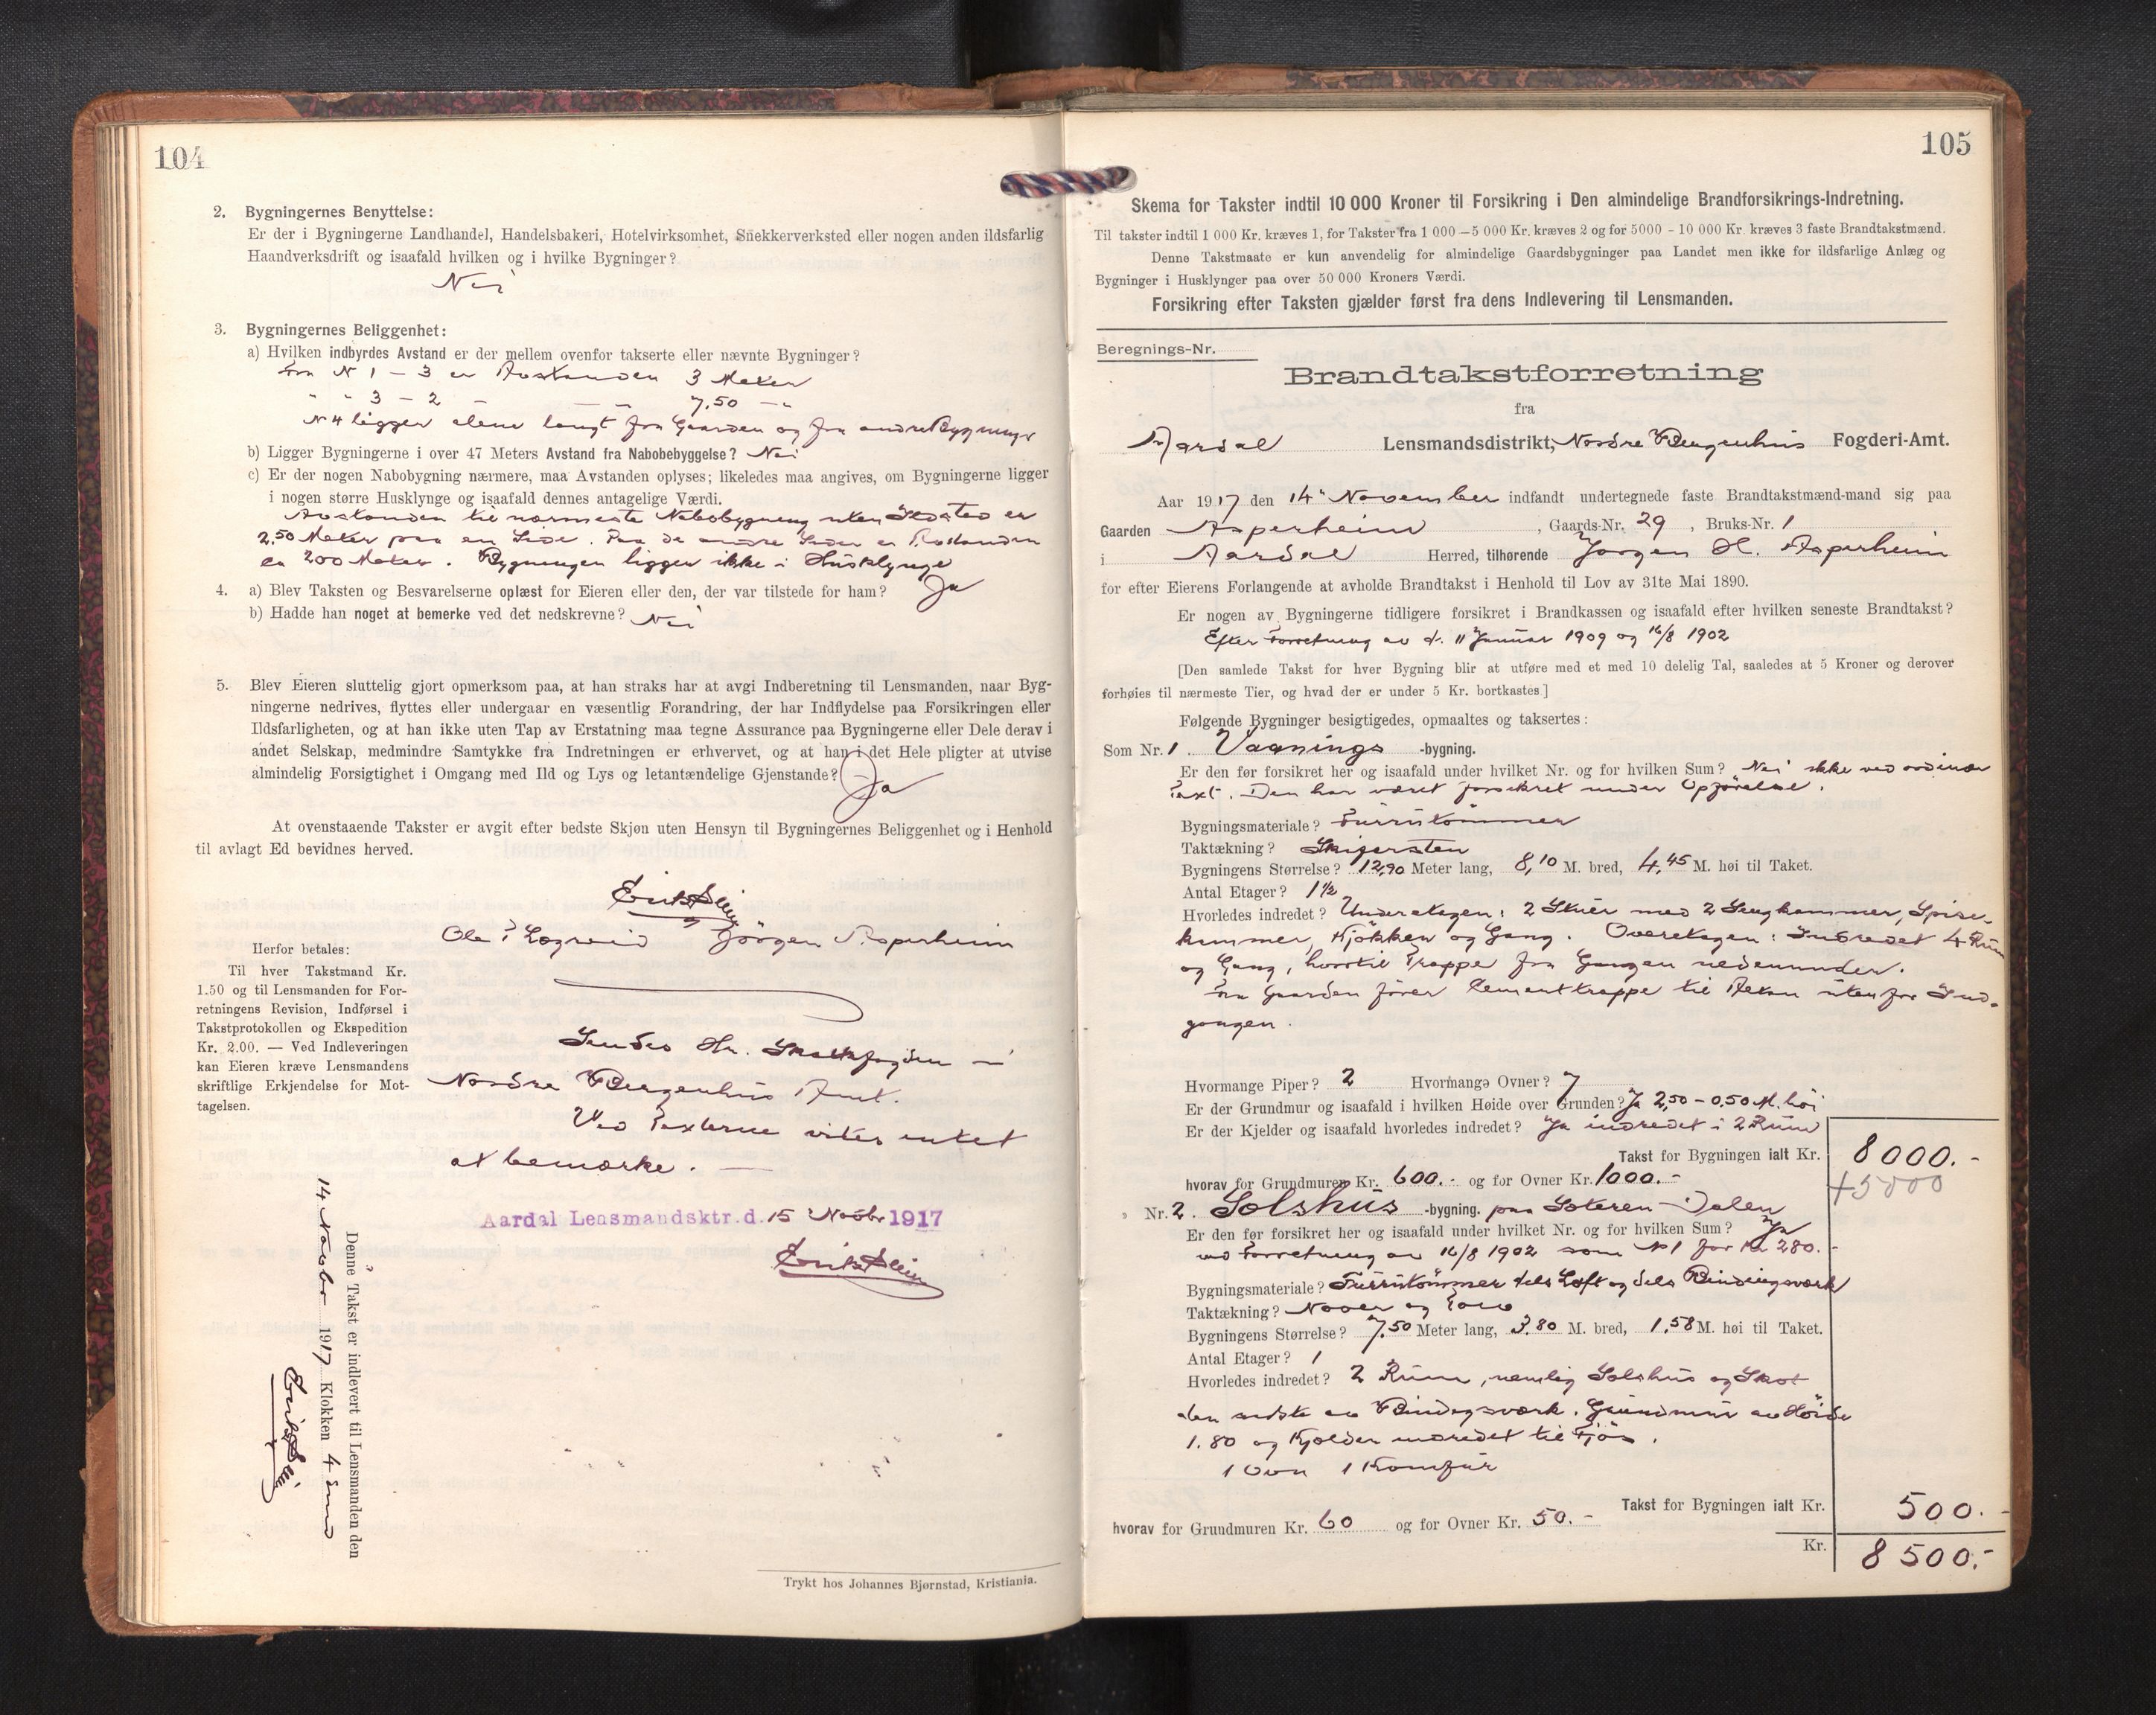 104
2. Bygningernes Benyttelse:
Er der i Bygningerne Landhandel, Handelsbakeri, Hotelvirksomhet, Snekkerverksted eller nogen anden ildsfarlig
Haandverksdrift og isaafald hvilken og i hvilke Bygninger?
Nei
3. Bygningernes Beliggenhet:
a) Hvilken indbyrdes Avstand er der mellem ovenfor takserte eller nævnte Bygninger?
Fra N 1 – 3 er Avstanden 3 Meter
" " 3 – 2 — „ — 7,50 — „
N 4 ligger alene langt fra Gaarden og fra andre Bygninger
b) Ligger Bygningerne i over 47 Meters Avstand fra Nabobebyggelse? Nei
c) Er der nogen Nabobygning nærmere, maa Avstanden oplyses; likeledes maa angives, om Bygningerne ligger
i nogen større Husklynge og isaafald dennes antagelige Værdi.
Avstanden til nærmeste Nabobygning uten Ildsted er
2,50 Meter paa en Side. Paa de andre Sider er Avstanden
ca 200 Meter. Bygningen ligger ikke i Husklynge
4. a) Blev Taksten og Besvarelserne oplæst for Eieren eller den, der var tilstede for ham? Ja
b) Hadde han noget at bemerke ved det nedskrevne? Nei
5. Blev Eieren sluttelig gjort opmerksom paa, at han straks har at avgi Indberetning til Lensmanden, naar Byg-
ningerne nedrives, flyttes eller undergaar en væsentlig Forandring, der har Indflydelse paa Forsikringen eller
Ildsfarligheten, og at han ikke uten Tap av Erstatning maa tegne Assurance paa Bygningerne eller Dele derav i
andet Selskap, medmindre Samtykke fra Indretningen er erhvervet, og at han i det Hele pligter at utvise
almindelig Forsigtighet i Omgang med Ild og Lys og letantændelige Gjenstande? Ja
At ovenstaaende Takster er avgit efter bedste Skjøn uten Hensyn til Bygningernes Beliggenhet og i Henhold
til avlagt Ed bevidnes herved.
Ole Jørgen Asperheim
Herfor betales:
Til hver Takstmand Kr.
1.50 og til Lensmanden for For-
retningens Revision, Indførsel i
Takstprotokollen og Ekspedition
Kr. 2.00. — Ved Indleveringen
kan Eieren kræve Lensmandens
skriftlige Erkjendelse for Mot-
tagelsen.
Sendes Hr. Skattefogden i
Nordre Bergenhus Amt.
Ved Taxterne vites intet
at bemærke. —
Aardal Lensmandsktr. d. 15 Novbr 1917
Denne Takst er indlevert til Lensmanden den
14 Novbr 1917 Klokken 4 Emd
Trykt hos Johannes Bjørnstad, Kristiania.
105
Skema for Takster indtil 10 000 Kroner til Forsikring i Den almindelige Brandforsikrings-Indretning.
Til takster indtil 1 000 Kr. kræves 1, for Takster fra 1 000 – 5 000 Kr. kræves 2 og for 5000 - 10 000 Kr. kræves 3 faste Brandtakstmænd.
Denne Takstmaate er kun anvendelig for almindelige Gaardsbygninger paa Landet men ikke for ildsfarlige Anlæg og
Bygninger i Husklynger paa over 50 000 Kroners Værdi.
Forsikring efter Taksten gjælder først fra dens Indlevering til Lensmanden.
Beregnings-Nr.
Brandtakstforretning
fra
Aardal Lensmandsdistrikt, Nordre Bergenhus Fogderi-Amt.
Aar 1917 den 14 November indfandt undertegnede faste Brandtakstmænd-mand sig paa
Gaarden Asperheim, Gaards-Nr. 29, Bruks-Nr. 1
i Aardal Herred, tilhørende Jørgen H. Asperheim
for efter Eierens Forlangende at avholde Brandtakst i Henhold til Lov av 31te Mai 1890.
Er nogen av Bygningerne tidligere forsikret i Brandkassen og isaafald efter hvilken seneste Brandtakst?
Efter Forretning av d. 11 Januar 1909 og 16/8 1902
[Den samlede Takst for hver Bygning blir at utføre med et med 10 delelig Tal, saaledes at 5 Kroner og derover
forhøies til nærmeste Tier, og hvad der er under 5 Kr. bortkastes.]
Følgende Bygninger besigtigedes, opmaaltes og taksertes:
Som Nr. 1. Vaanings -bygning.
Er den før forsikret her og isaafald under hvilket Nr. og for hvilken Sum? Nei ikke ved ordinær
Taxt. Den har været forsikret under Opførelse.
Bygningsmateriale? Furutømmer
Taktækning? Skifersten
Bygningens Størrelse? 12,90 Meter lang, 8,10 M. bred, 4,45 M. høi til Taket.
Antal Etager? 1½
Hvorledes indredet? Underetagen: 2 Stuer med 2 Sengkammer, Spise-
kammer, Kjøkken og Gang. Overetagen: Indredet 4 Rum
og Gang, hvortil Trappe fra Gangen nedenunder.
Fra Gaarden fører Cementtrappe til Altan utenfor Ind-
gangen.
Hvormange Piper? 2 Hvormange Ovner? 7
Er der Grundmur og isaafald i hvilken Høide over Grunden? Ja 2,50 – 0,50 M. høi
Er der Kjelder og isaafald hvorledes indredet? Ja indredet i 2 Rum
Takst for Bygningen ialt Kr. 8000.-
hvorav for Grundmuren Kr. 600.- og for Ovner Kr. 1000.-
+5000
" Nr. 2. Selshus -bygning. paa
Er den før forsikret her og isaafald under hvilket Nr. og for hvilken Sum? Ja
ved Forretning av 16/8 1902 som N 1 for Kr 280.-
Bygningsmateriale? Furutømmer dels Laft og dels Bindingsværk
Taktækning? Næver og Torv
Bygningens Størrelse? 7,50 Meter lang, 3,80 M. bred, 1,58 M. høi til Taket.
Antal Etager? 1
Hvorledes indredet? 2 Rum, nemlig Selshus og Skot
den sidste av Bindingsværk. Grundmur av Høide
1.80 og Kjelder indredet til Fjøs.
1 Ovn 1 Komfur
Takst for Bygningen ialt Kr. 500.-
hvorav for Grundmuren Kr. 60 og for Ovner Kr. 50.-
Kr. 8500.-